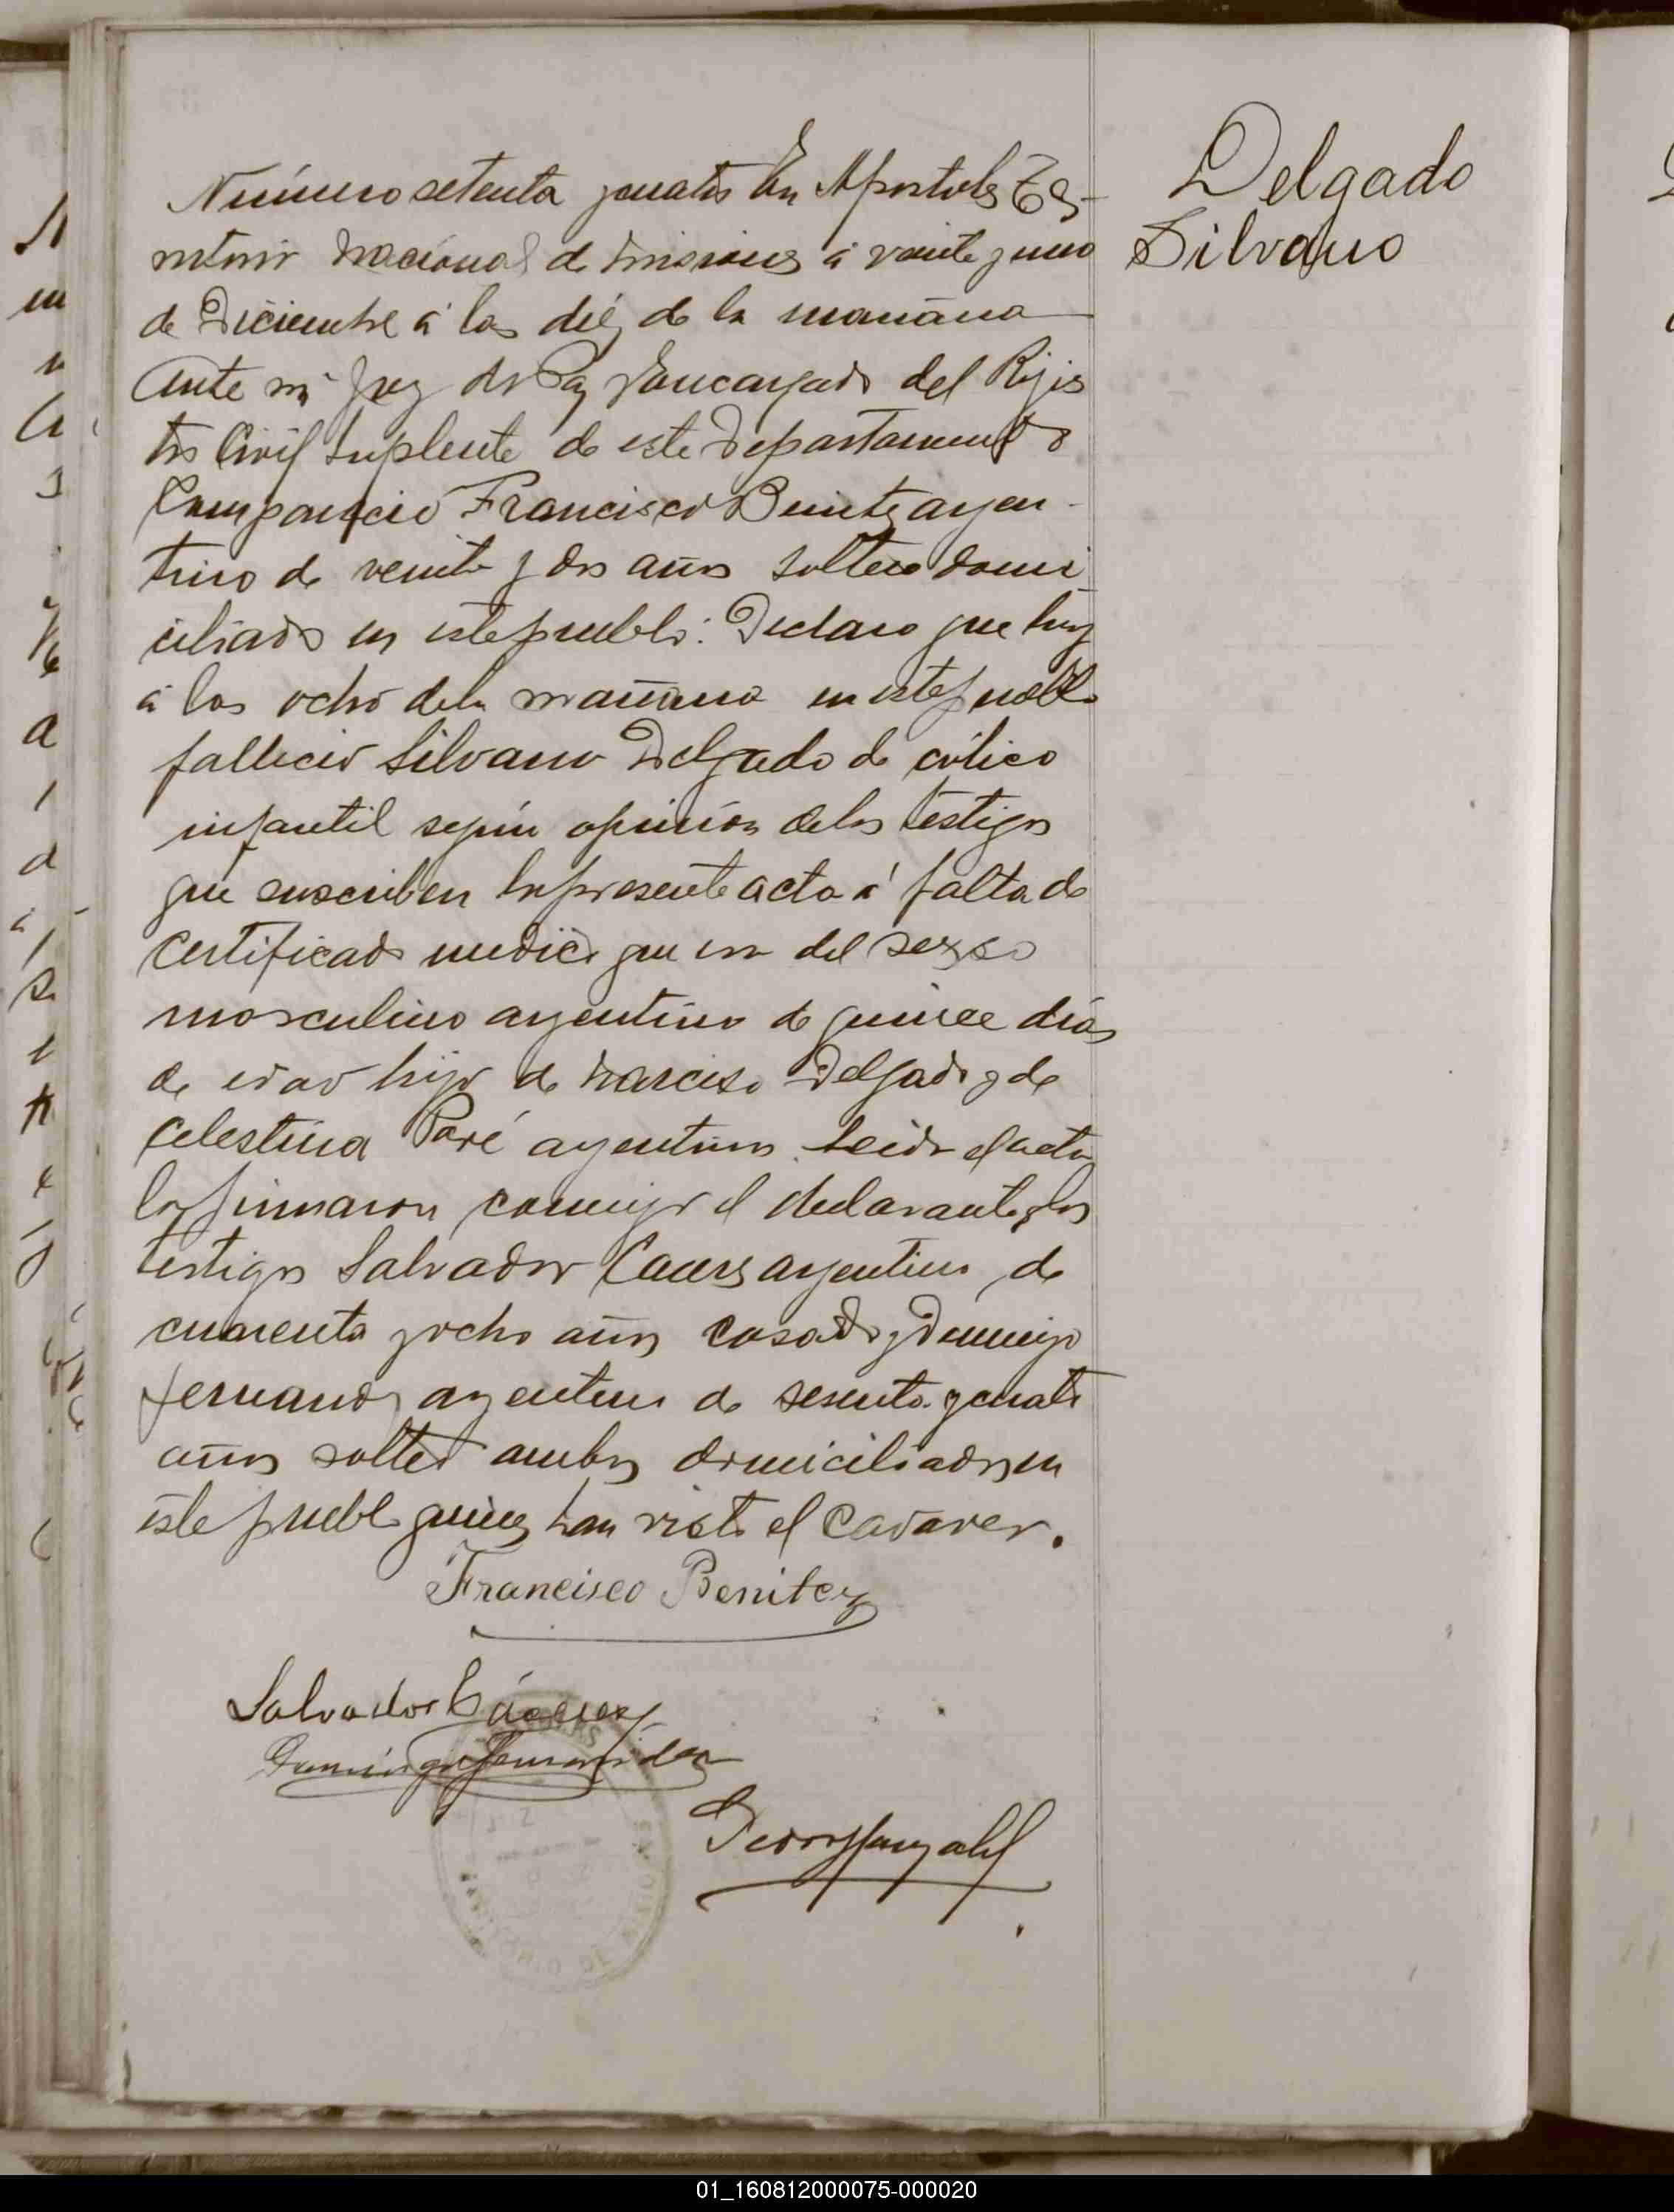 Delgado
Silvano
Número setenta y cuatro En Apostoles Te-
rritorio Nacional de Misiones á veinte y uno
de Diciembre á las diéz de la mañana
Ante mi Juez de Paz y Encargado del Rejis
tro Civil Suplente de este Departamento
Compareció Francisco Benitez argen-
tino de veinte y dos años soltero domi
ciliado en este pueblo: Declaro que hoy
á las ocho dela mañana en este pueblo
fallecio Silvano Delgado de cólico
infantil según opinión delos testigos
que suscriben la presente acta á falta de
Certificado medico que era del sexso
masculino argentino de quince dias
de edad hijo de Narciso Delgado y de
Celestina Paré argentinos. Leida el acta
la firmaron conmigo el declarante y los
testigos Salvador Caceres argentino, de
cuarenta y ocho años casado y Domingo
Fernandez argentino de sesenta y cuatro
años soltero ambos domiciliados en
este pueblo quienes han visto el Cadaver.
Francisco Benitez
Salvador Cáceres
Domingo Fernandez
01_160812000075-000020